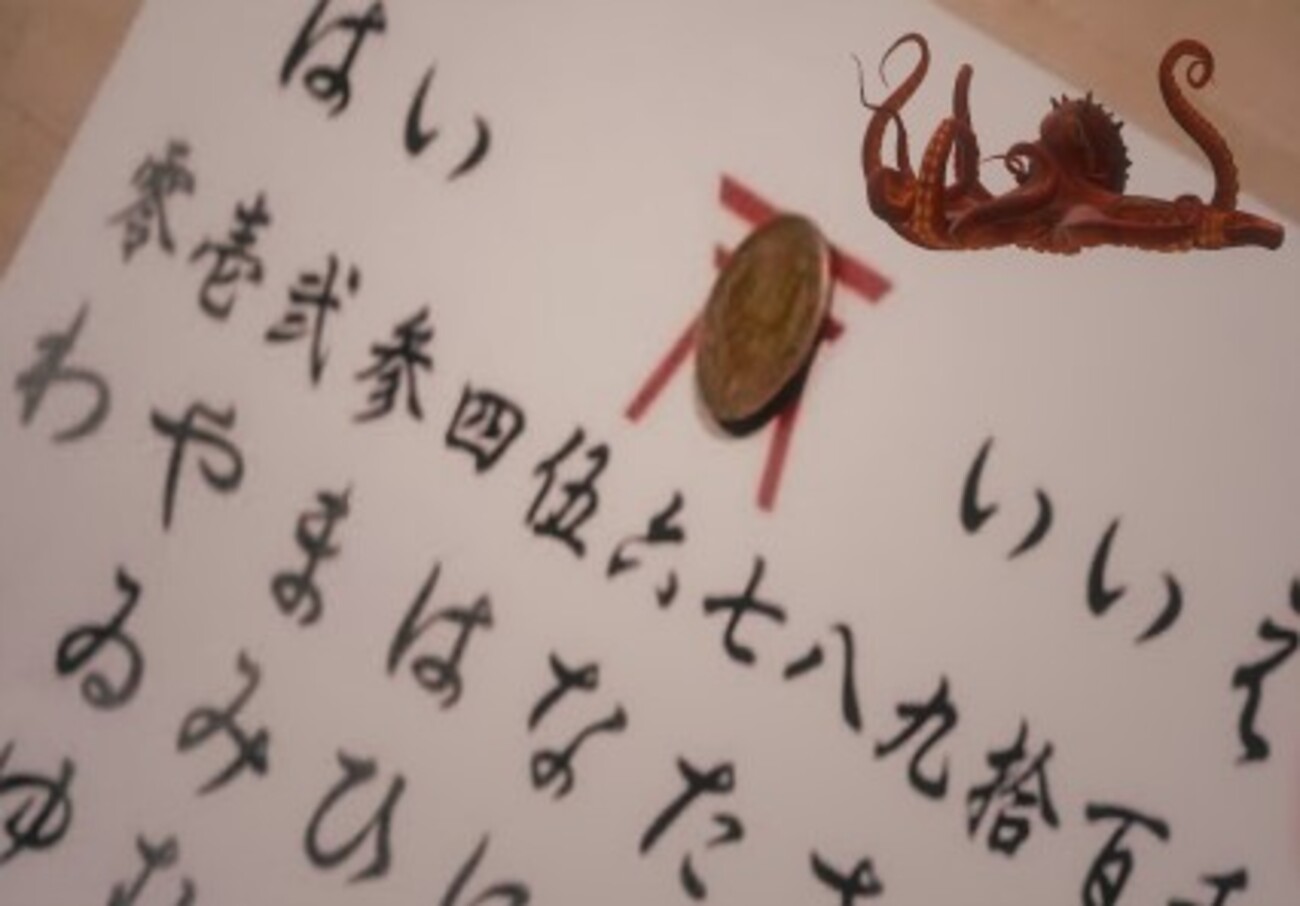 はい
いい
零壱弐参四伍六七八九拾百
わやまはなた
ゐみひ
ゆむ